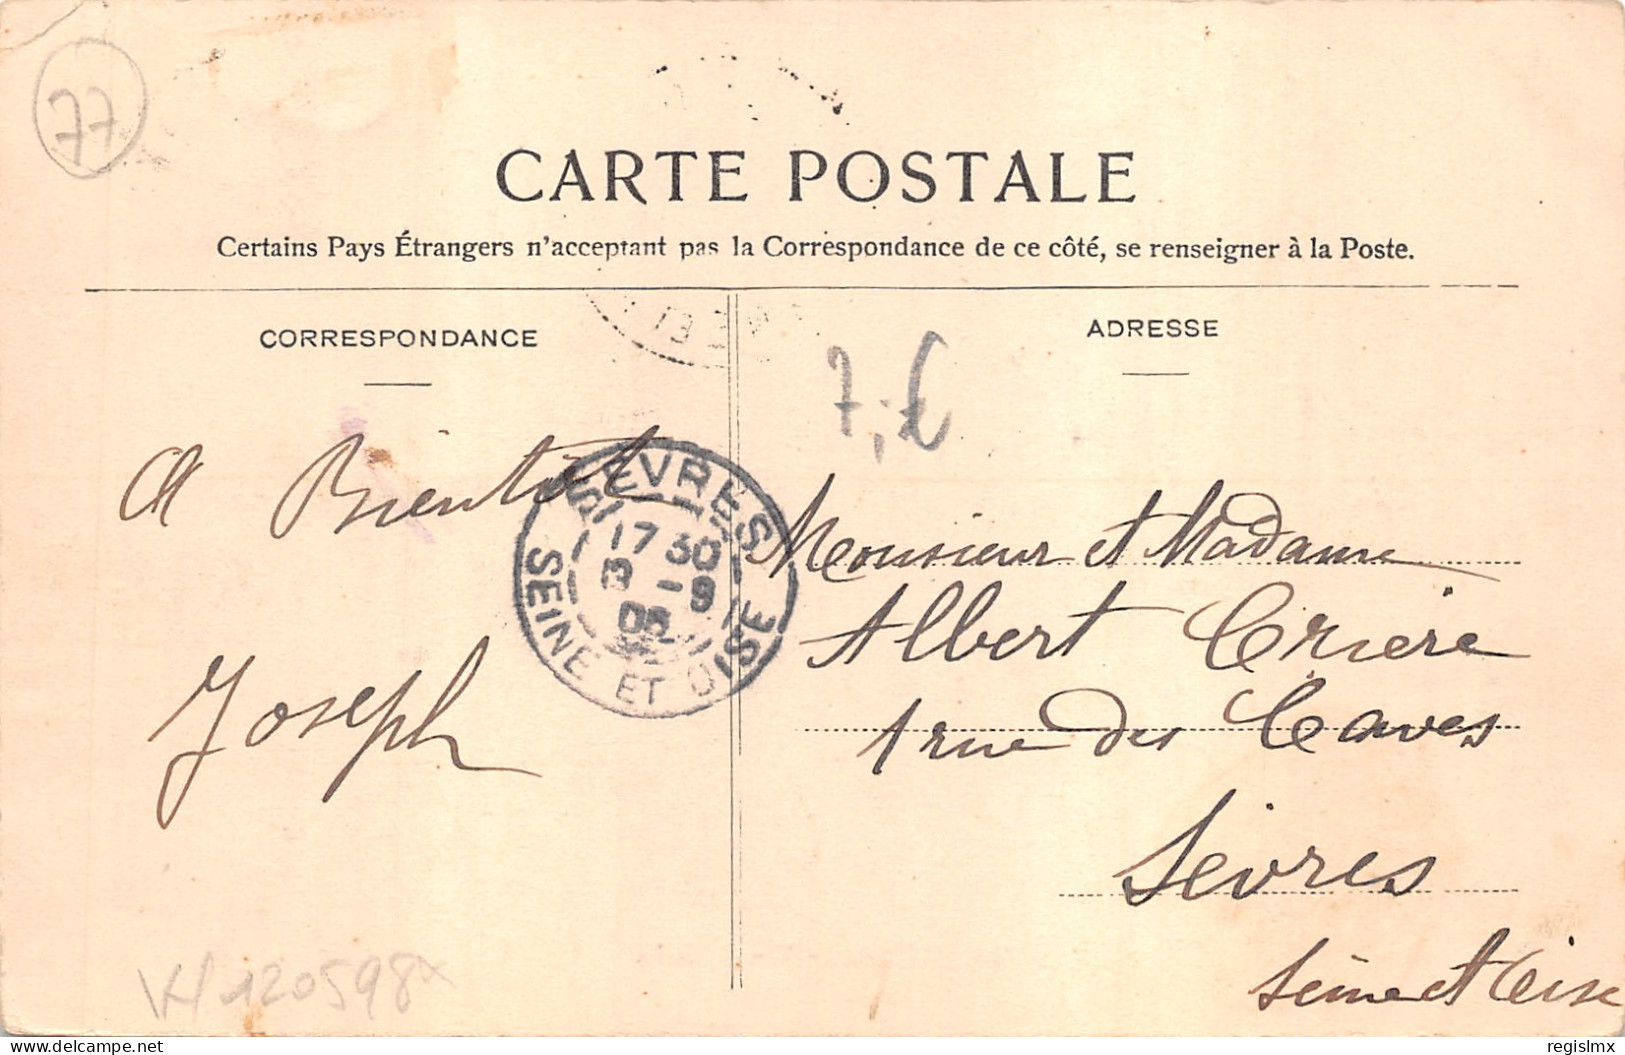 77
CARTE POSTALE
Certains Pays Étrangers n'acceptant pas la Correspondance de ce côté, se renseigner à la Poste.
CORRESPONDANCE
ADRESSE
7,€
A Bientôt
Joseph
SÈVRES
17 30
3 -9
05
SEINE ET OISE
Monsieur et Madame
Albert Criere
1 rue des Caves
Sèvres
Seine et Oise
120598
delcampe.net
regislmx